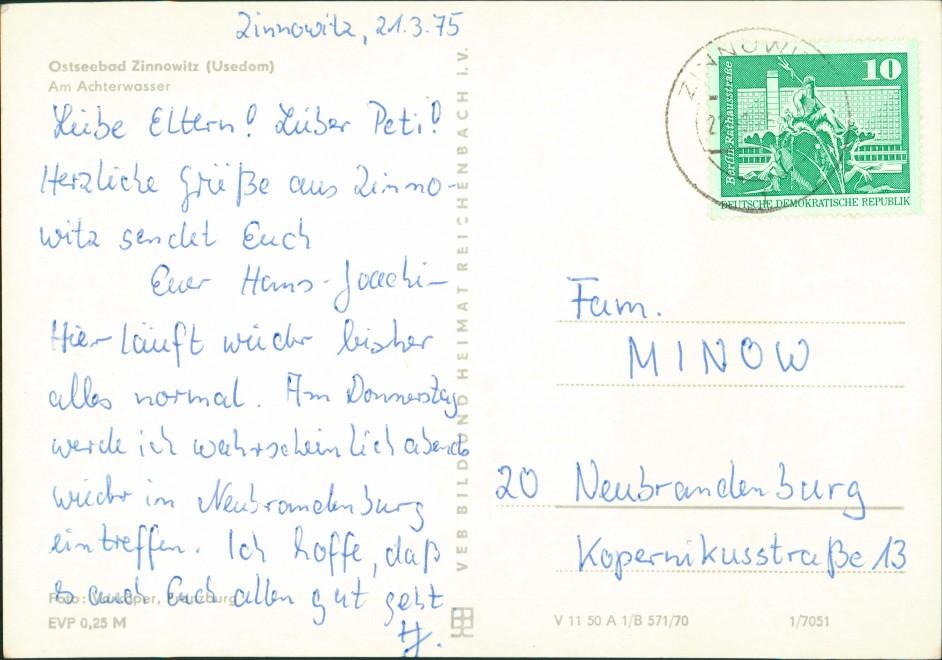 Zinnowitz, 21.3.75
Ostseebad Zinnowitz (Usedom)
Am Achterwasser
Liebe Eltern! Lieber Peti!
Herzliche Grüße aus Zinno-
witz sendet Euch
Euer Hans-Joachim
Hier läuft wieder bisher
alles normal. Am Donnerstag
werde ich wahrscheinlich abends
wieder in Neubrandenburg
eintreffen. Ich hoffe, daß
es auch Euch allen gut geht
HJ.
Foto:
EVP 0,25 M
VEB BILD UND HEIMAT REICHENBACH I.V.
ZINNOWITZ
10
Berlin-Rathausstraße
DEUTSCHE DEMOKRATISCHE REPUBLIK
Fam.
MINOW
20 Neubrandenburg
Kopernikusstraße 13
V 11 50 A 1/B 571/70
1/7051